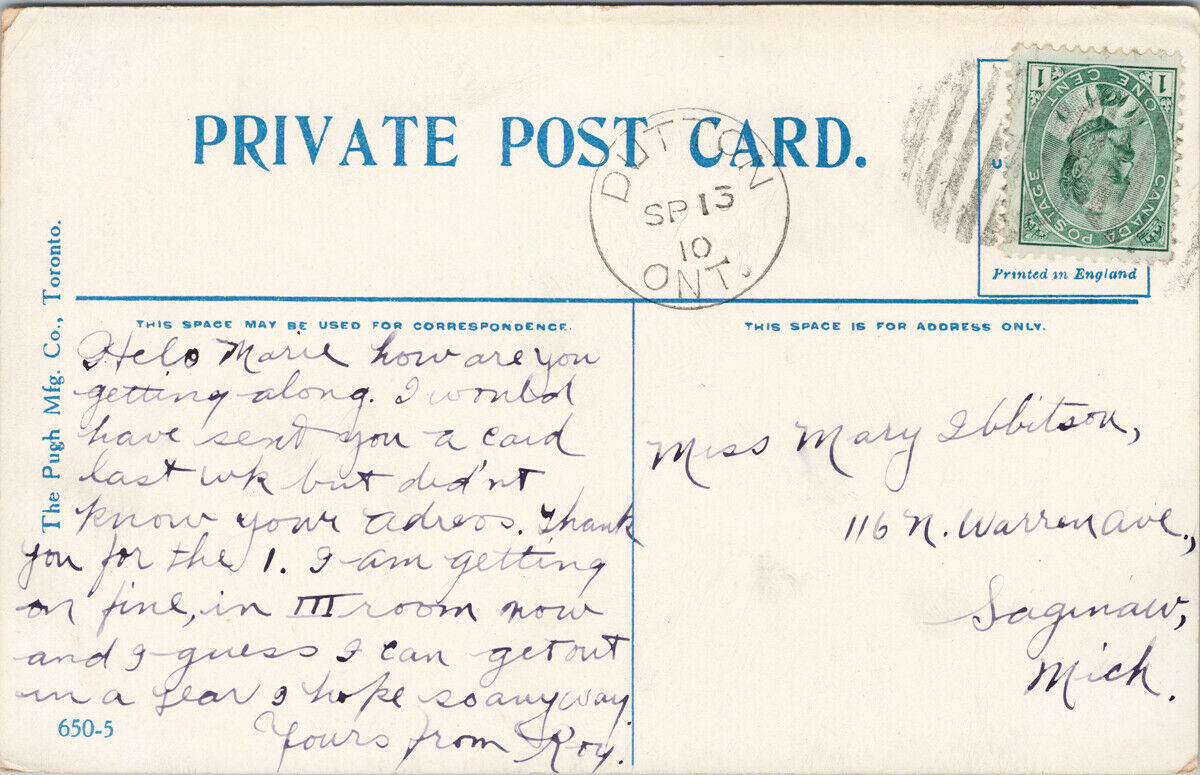 PRIVATE POST CARD.
DUTTON
SP 13
10
ONT.
1 1
ONE CENT
CANADA POSTAGE
U
Printed in England
The Pugh Mfg. Co., Toronto.
THIS SPACE MAY BE USED FOR CORRESPONDENCE.
Helo Marie how are you
getting along. I would
have sent you a card
last wk but did'nt
know your adress. Thank
you for the 1. I am getting
on fine, in III room now
and I guess I can get out
in a year I hope so anyway.
Yours from Roy.
650-5
THIS SPACE IS FOR ADDRESS ONLY.
Miss Mary Ibbitson,
116 N. Warren Ave.,
Saginaw,
Mich.